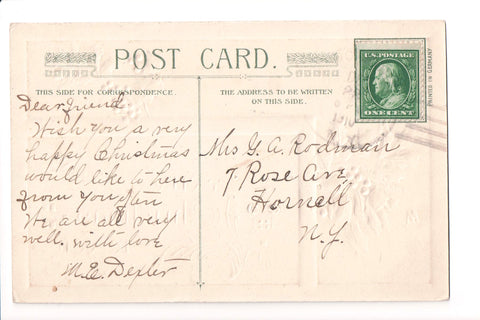 POST CARD.
THIS SIDE FOR CORRESPONDENCE.
THE ADDRESS TO BE WRITTEN
ON THIS SIDE.
U.S. POSTAGE
ONE CENT
PRINTED IN GERMANY
1910
Dear friend
Wish you a very
happy Christmas
would like to here
from you often
We are all very
well. with love
M.E. Dexter
Mrs G. A. Rodman
7 Rose Ave
Hornell
N.Y.